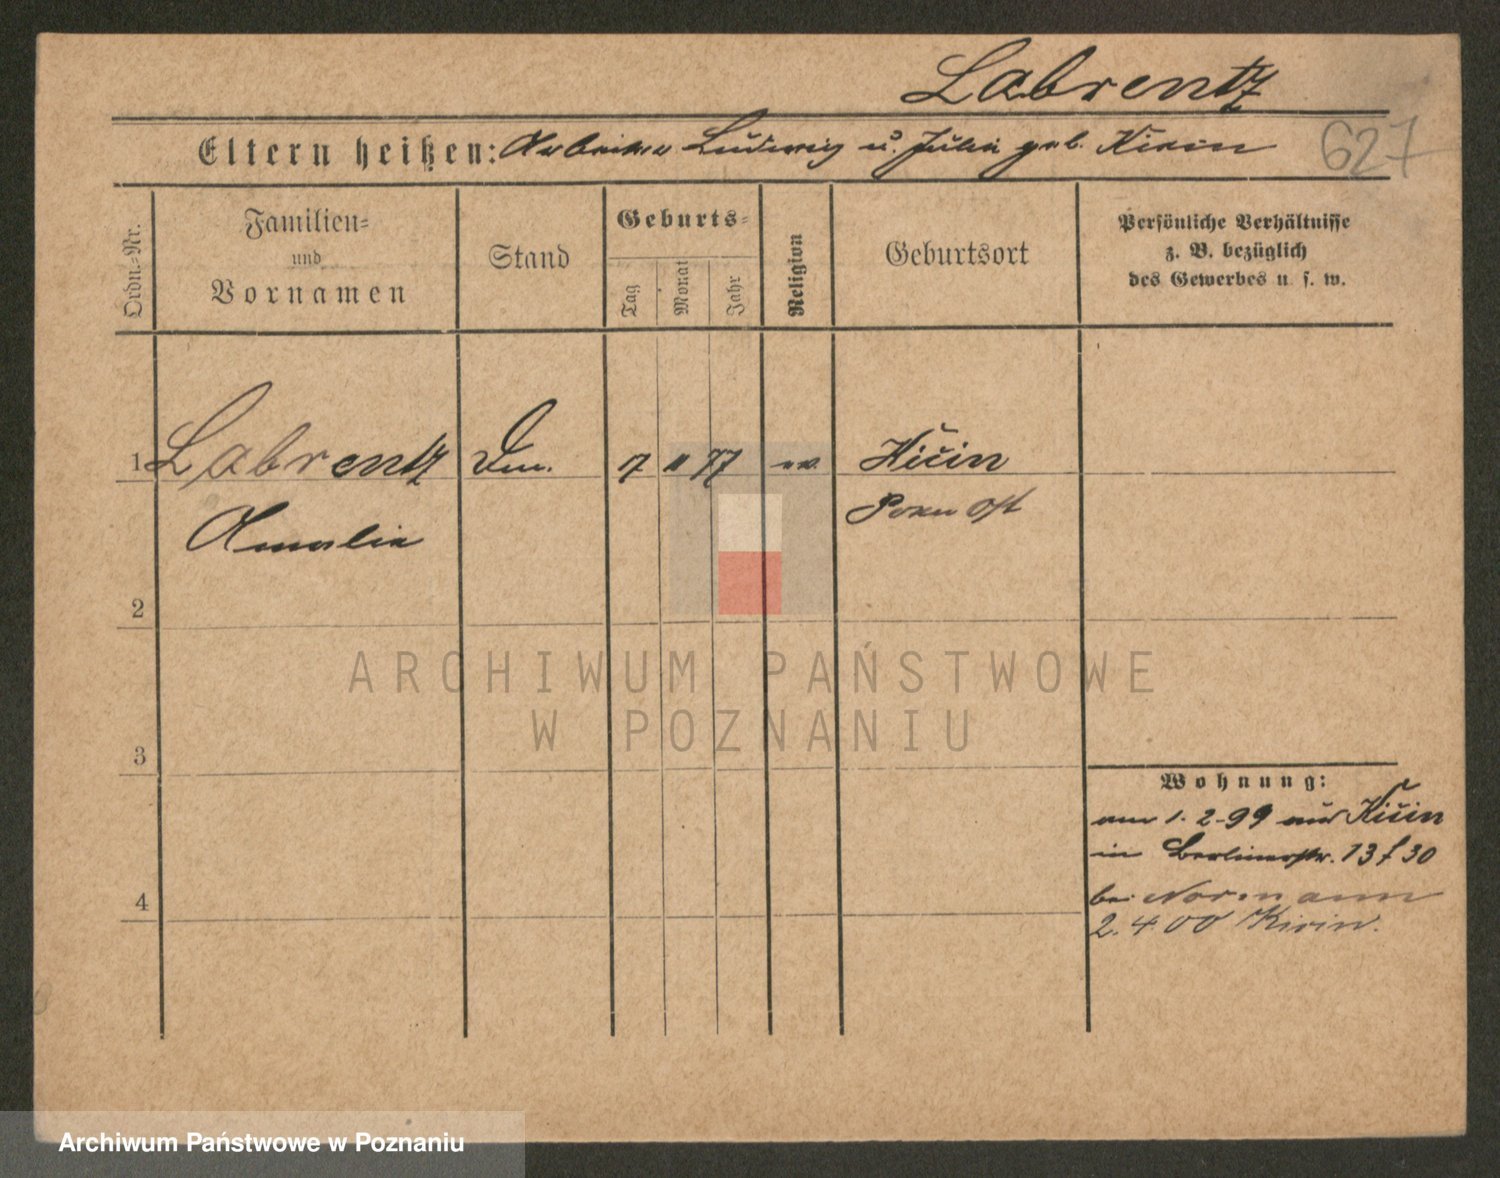 Labrentz
Eltern heißen: Arbeiter Ludwig u. Julie geb. Kirin
627
Ordn.-Nr.
Familien-
und
Vornamen
Stand
Geburts-
Tag
Monat
Jahr
Religion
Geburtsort
Persönliche Verhältnisse
z. B. bezüglich
des Gewerbes u. s. w.
1 Labrentz 7 11 77 ev. Kičin
Amalie Posen Ost
2
3
4
Wohnung:
am 1. 2-99 aus Kičin
in Berlinerstr. 13 f 30
bei Normann
2. 4 00 Kicin.
ARCHIWUM PAŃSTWOWE
W POZNANIU
Archiwum Państwowe w Poznaniu